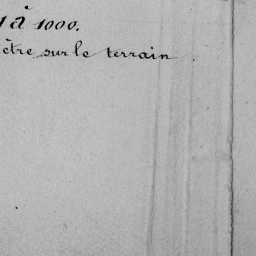 1 à 1000.
ètre sur le terrain